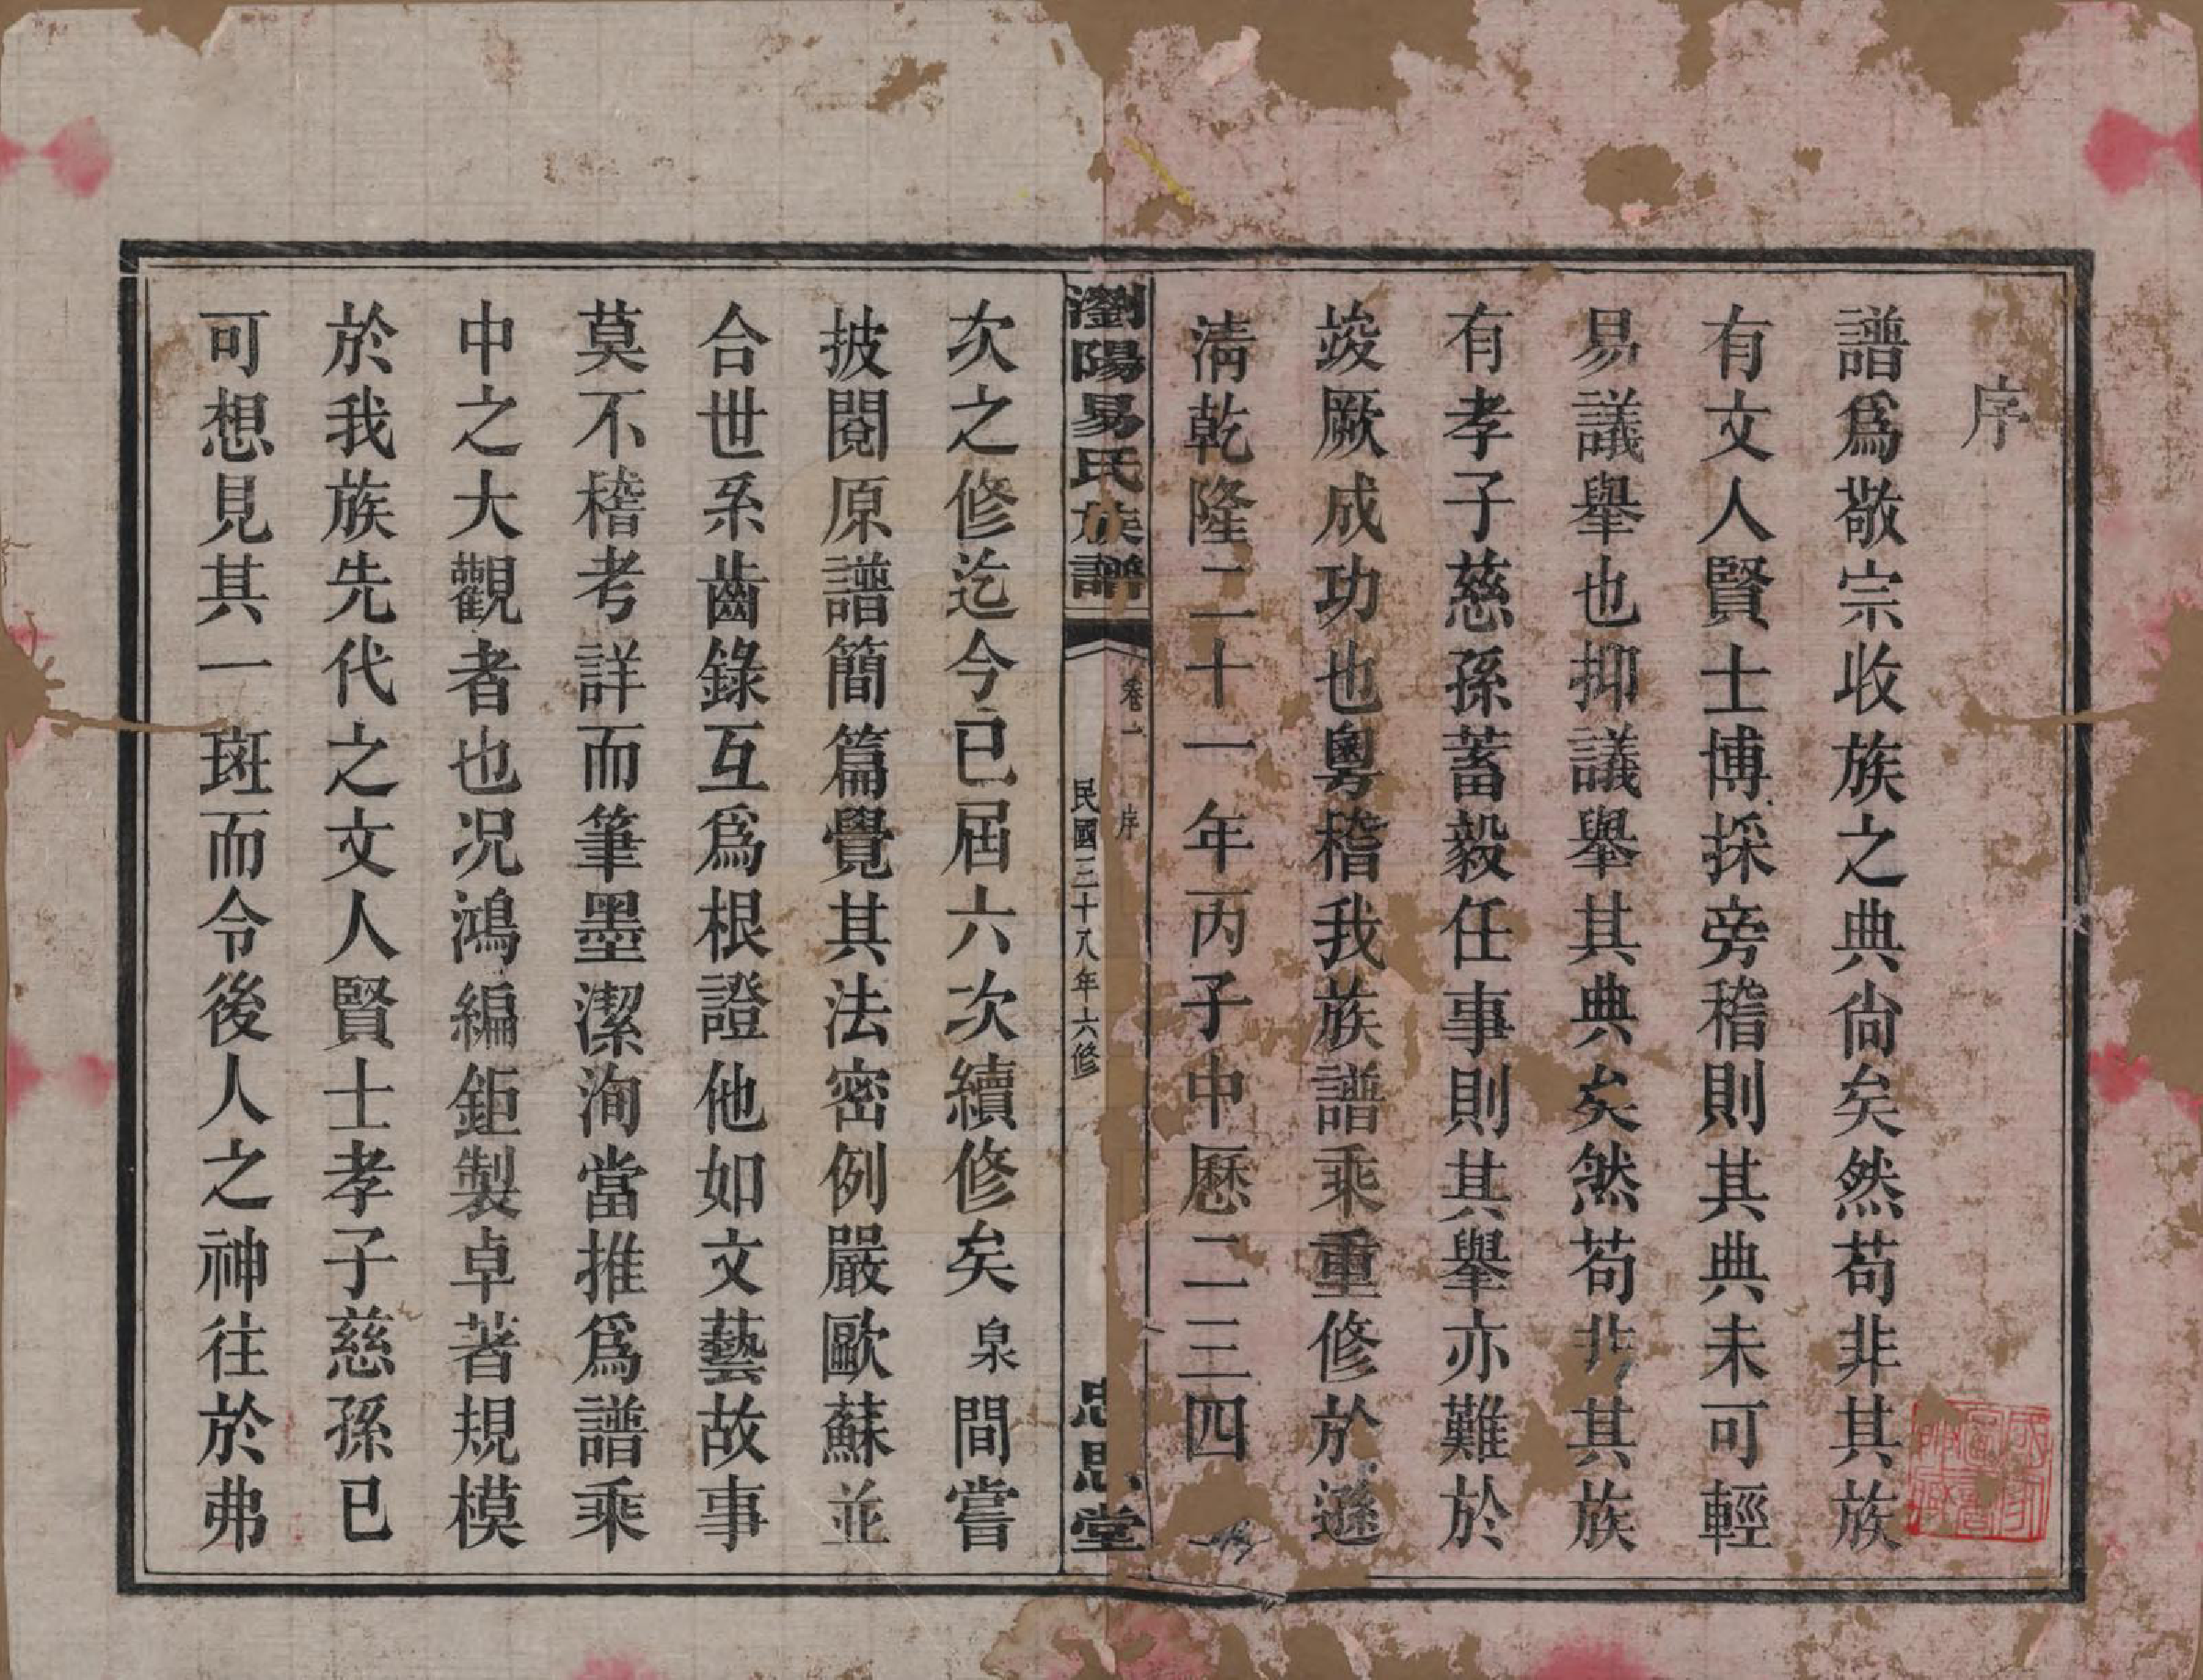 序
譜爲敬宗收族之典尙矣然苟非其族
有文人賢士博採旁稽則其典未可輕
易議舉也抑議舉其典矣然苟非其族
有孝子慈孫蓄毅任事則其舉亦難於
竣厥成功也粵稽我族譜乘重修於遜
淸乾隆二十一年丙子中歷二三四
瀏陽易氏族譜
卷一 序
民國三十八年六修
思堂
次之修迄今已屆六次續修矣泉間嘗
披閱原譜簡篇覺其法密例嚴歐蘇並
合世系齒錄互爲根證他如文藝故事
莫不稽考詳而筆墨潔洵當推爲譜乘
中之大觀者也况鴻編鉅製卓著規模
於我族先代之文人賢士孝子慈孫已
可想見其一斑而令後人之神往於弗